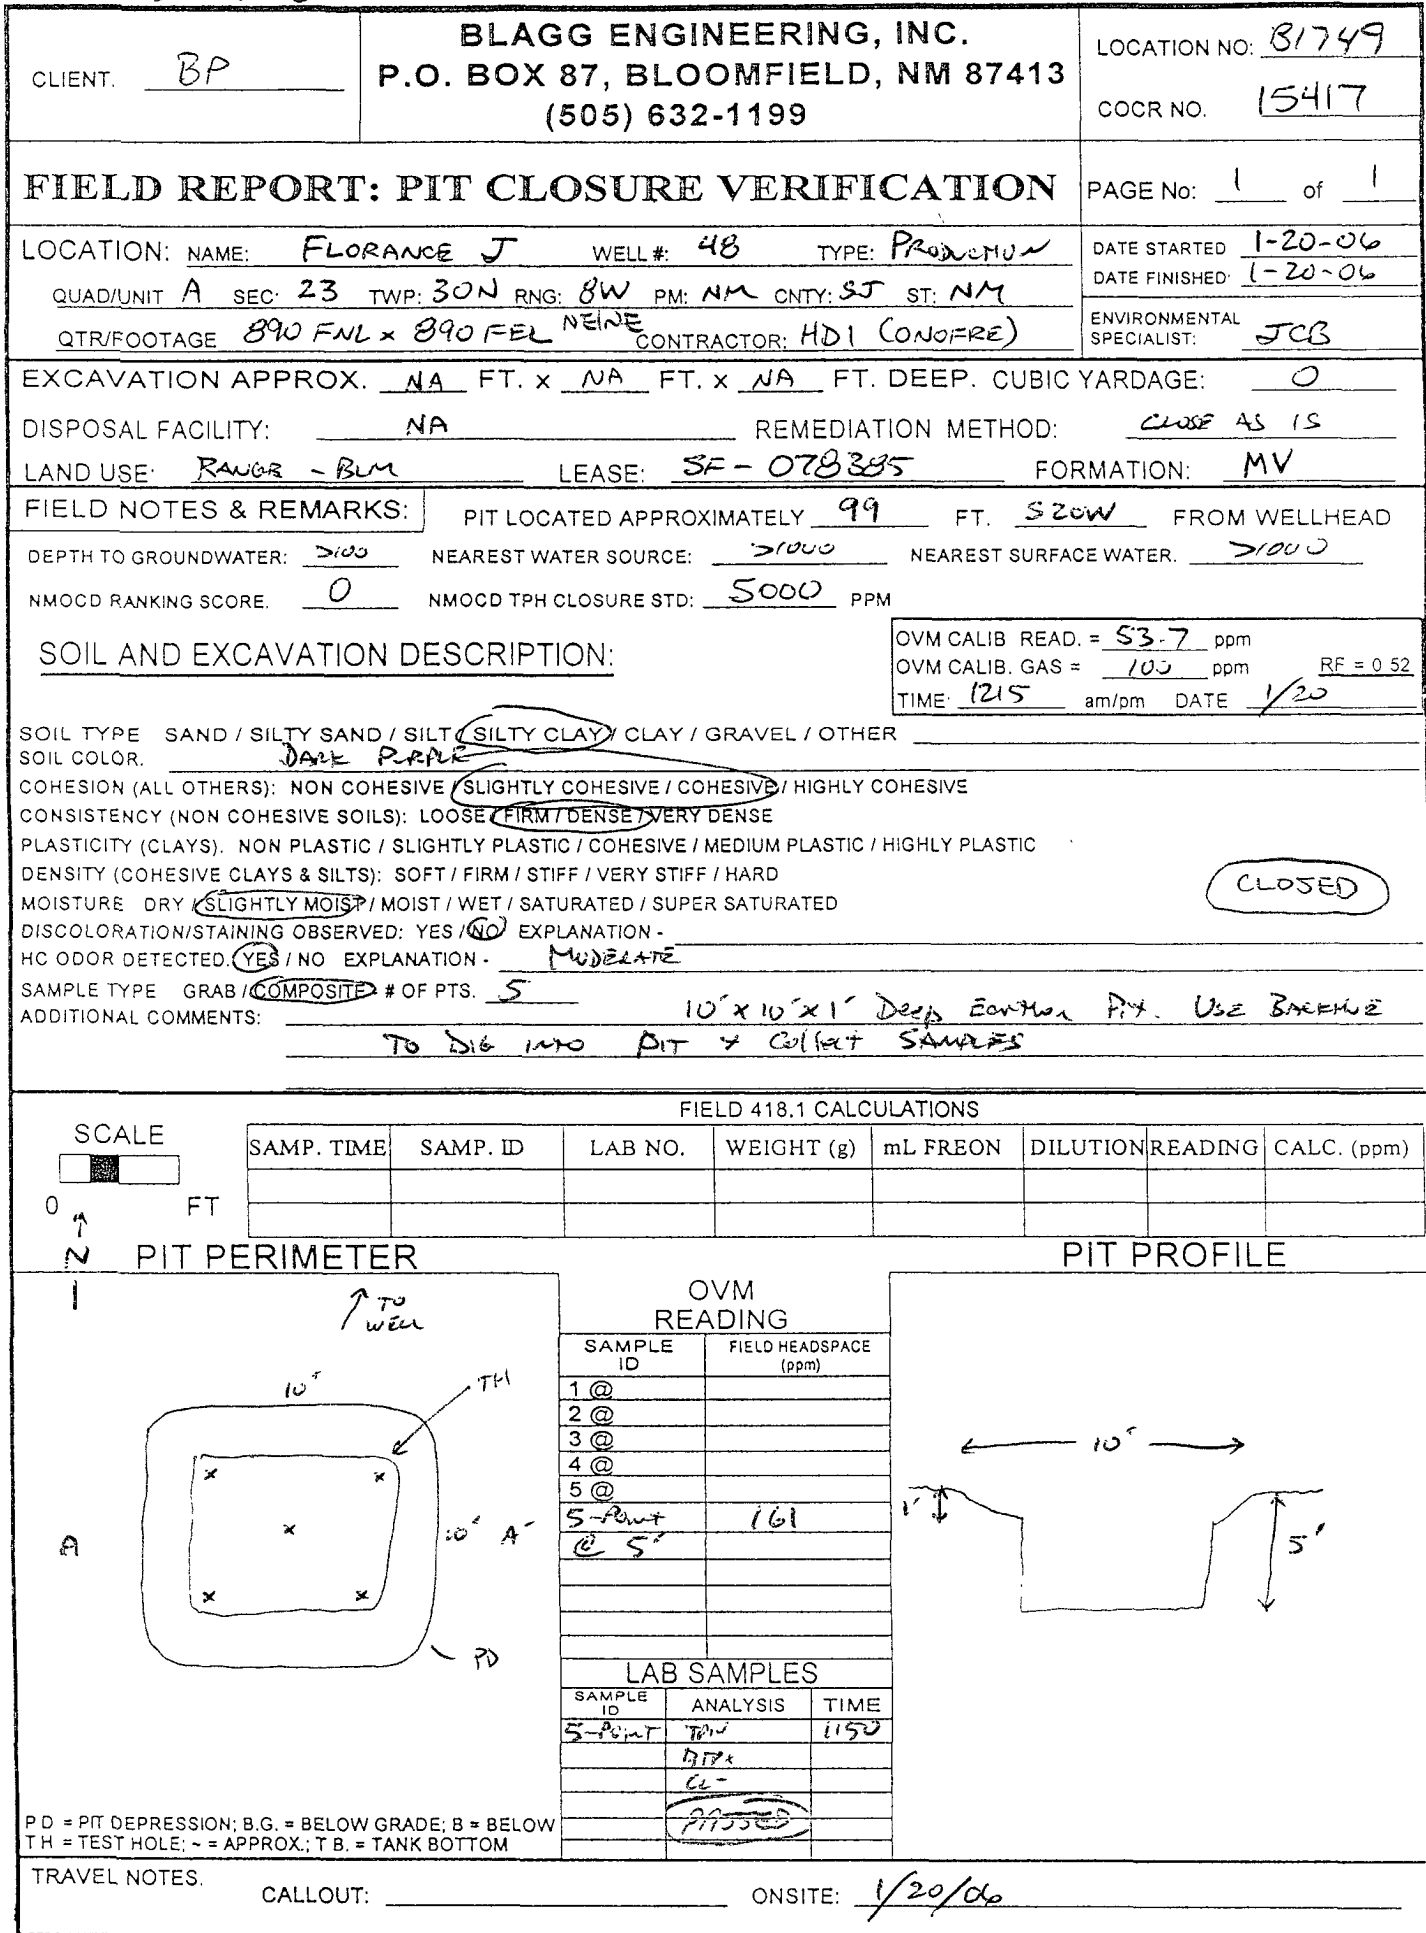 CLIENT. BP
BLAGG ENGINEERING, INC.
P.O. BOX 87, BLOOMFIELD, NM 87413
(505) 632-1199
LOCATION NO: B1749
COCR NO. 15417
FIELD REPORT: PIT CLOSURE VERIFICATION
PAGE No: 1 of 1
LOCATION: NAME: FLORANCE J WELL #: 48 TYPE: PRODUCTION
QUAD/UNIT A SEC: 23 TWP: 30N RNG: 8W PM: NM CNTY: SJ ST: NM
QTR/FOOTAGE 890 FNL x 890 FEL NE/NE CONTRACTOR: HDI (ONOFRE)
DATE STARTED 1-20-06
DATE FINISHED: 1-20-06
ENVIRONMENTAL
SPECIALIST: JCB
EXCAVATION APPROX. NA FT. x NA FT. x NA FT. DEEP. CUBIC YARDAGE: 0
DISPOSAL FACILITY: NA REMEDIATION METHOD: CLOSE AS IS
LAND USE: RANGE - BLM LEASE: SF - 078385 FORMATION: MV
FIELD NOTES & REMARKS: PIT LOCATED APPROXIMATELY 99 FT. S20W FROM WELLHEAD
DEPTH TO GROUNDWATER: >100 NEAREST WATER SOURCE: >1000 NEAREST SURFACE WATER. >1000
NMOCD RANKING SCORE. 0 NMOCD TPH CLOSURE STD: 5000 PPM
SOIL AND EXCAVATION DESCRIPTION:
OVM CALIB READ. = 53.7 ppm
OVM CALIB. GAS = 100 ppm RF = 0 52
TIME: 1215 am/pm DATE 1/20
SOIL TYPE SAND / SILTY SAND / SILT / SILTY CLAY / CLAY / GRAVEL / OTHER
SOIL COLOR. DARK PURPLE
COHESION (ALL OTHERS): NON COHESIVE / SLIGHTLY COHESIVE / COHESIVE / HIGHLY COHESIVE
CONSISTENCY (NON COHESIVE SOILS): LOOSE / FIRM / DENSE / VERY DENSE
PLASTICITY (CLAYS). NON PLASTIC / SLIGHTLY PLASTIC / COHESIVE / MEDIUM PLASTIC / HIGHLY PLASTIC
DENSITY (COHESIVE CLAYS & SILTS): SOFT / FIRM / STIFF / VERY STIFF / HARD
CLOSED
MOISTURE DRY / SLIGHTLY MOIST / MOIST / WET / SATURATED / SUPER SATURATED
DISCOLORATION/STAINING OBSERVED: YES / NO EXPLANATION -
HC ODOR DETECTED. YES / NO EXPLANATION - MODERATE
SAMPLE TYPE GRAB / COMPOSITE # OF PTS. 5
ADDITIONAL COMMENTS: 10' x 10' x 1' Deep Earthen Pit. USE BACKHOE
TO DIG INTO PIT & Collect SAMPLES
FIELD 418.1 CALCULATIONS
SCALE
0 FT
SAMP. TIME SAMP. ID LAB NO. WEIGHT (g) mL FREON DILUTION READING CALC. (ppm)
N
PIT PERIMETER
PIT PROFILE
TO
WELL
10'
TH
A
10' A'
PD
OVM
READING
SAMPLE
ID
FIELD HEADSPACE
(ppm)
1 @
2 @
3 @
4 @
5 @
5-Point 161
@ 5'
10'
1'
5'
LAB SAMPLES
SAMPLE
ID
ANALYSIS TIME
5-POINT TPH 1150
BTEX
CL-
PASSED
P D = PIT DEPRESSION; B.G. = BELOW GRADE; B = BELOW
T H = TEST HOLE; ~ = APPROX.; T B. = TANK BOTTOM
TRAVEL NOTES.
CALLOUT: ONSITE: 1/20/06